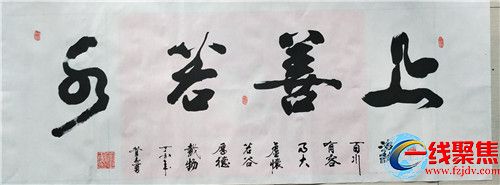 上善若水
海纳
百川
有容
乃大
虚怀
若谷
厚德
载物
丁未年
一线聚焦
www.fzjdv.com